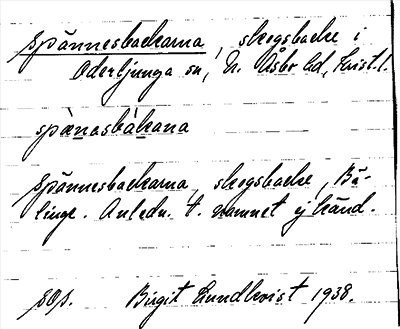 Spännesbackarna, skogsbacke i
Oderljunga sn, N. Åsbo hd, Krist. l.
spànasbákana
Spännesbackarna, skogsbacke, Bä-
linge. Anledn. t. namnet ej känd.
Birgit Lundkvist 1938.